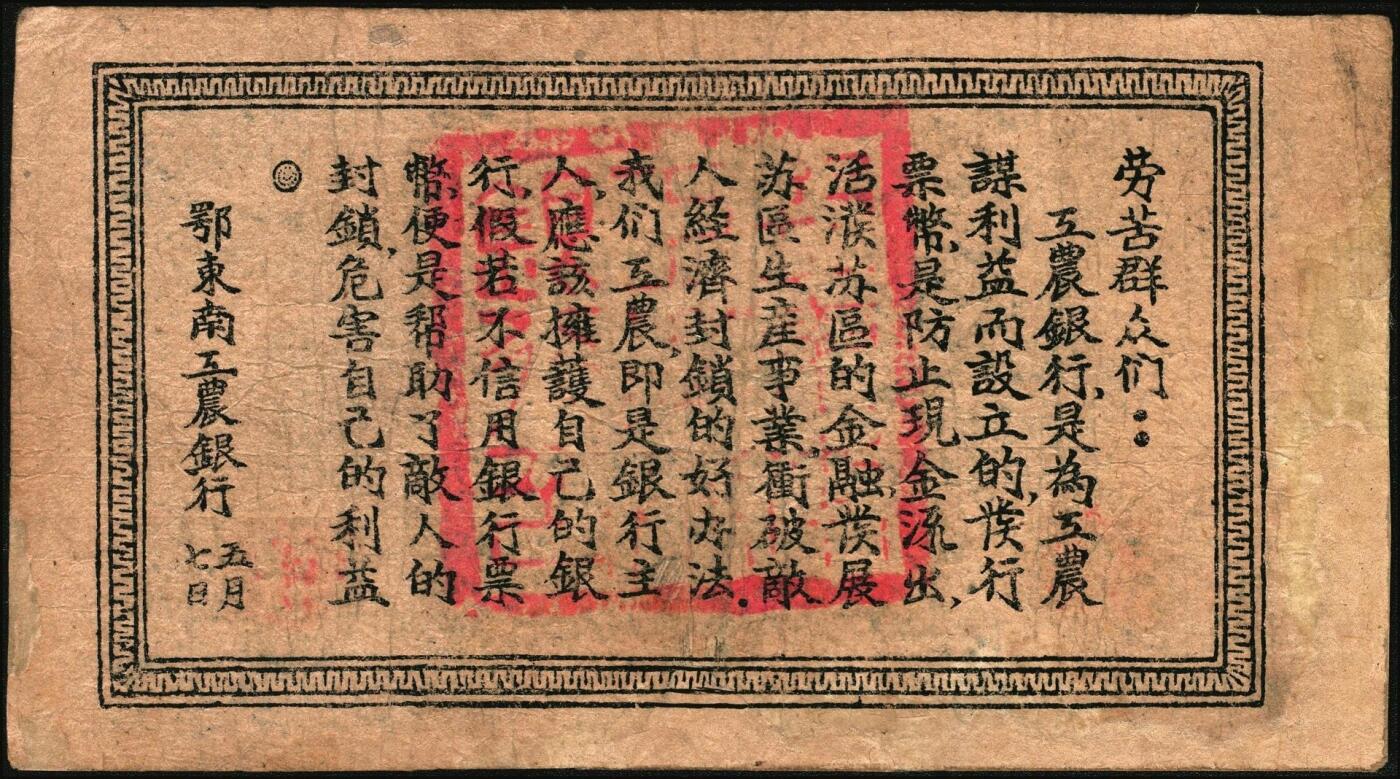 劳苦群众们：
工農銀行,是為工農
謀利益而設立的,發行
票幣,是防止現金流出,
活潑苏區的金融,發展
苏區生產事業,衝破敵
人經濟封鎖的好办法.
我们工農,即是銀行主
人,應該擁護自己的銀
行,假若不信用銀行票
幣,便是帮助了敵人的
封鎖,危害自己的利益
◎
鄂東南工農銀行 五月七日